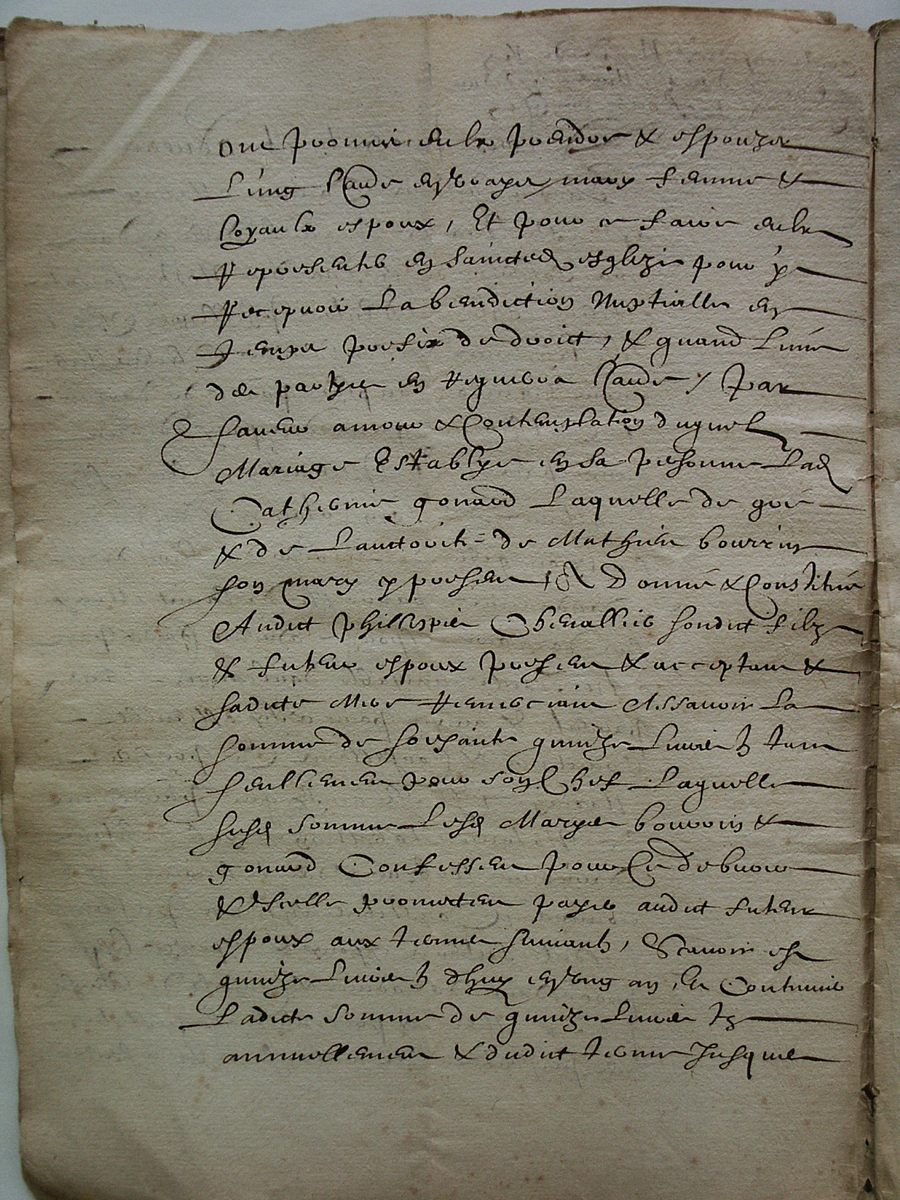 ont promis eulx prendre & espouzer
L'ung l'aude en vraye mary femme &
loyaulx espoux, Et pour ce faire eulx
Representer en saincte esglize pour y
Recepvoir La benediction Nuptialle en
temps prefix de droict, & quand L'une
des partyes en Requerra l'aude / Par
faveur amour & Contemplation duquel
Mariage Establye en sa personne Lad
Catherine gonard Laquelle de gré
& de Lauctorité de Mathieu bourrin
son mary y present, A Donné & Constitué
Audict Phillippe Chevallier sondict filz
& futeur espoux present & acceptant &
sadicte Mere Remerciant Assavoir La
somme de soixante quinze Livres tz tant
seullement pour son Chef Laquelle
susd somme Lesd Maryés bourrin &
gonard Confessent pour ce debvoir
& Icelle promettent payer audict futeur
espoux aux termes suivants, Scavoir est
quinze Livres tz d'huy en ung an, et Continuer
Ladicte somme de quinze Livres tz
annuellement & dudict terme Jusques